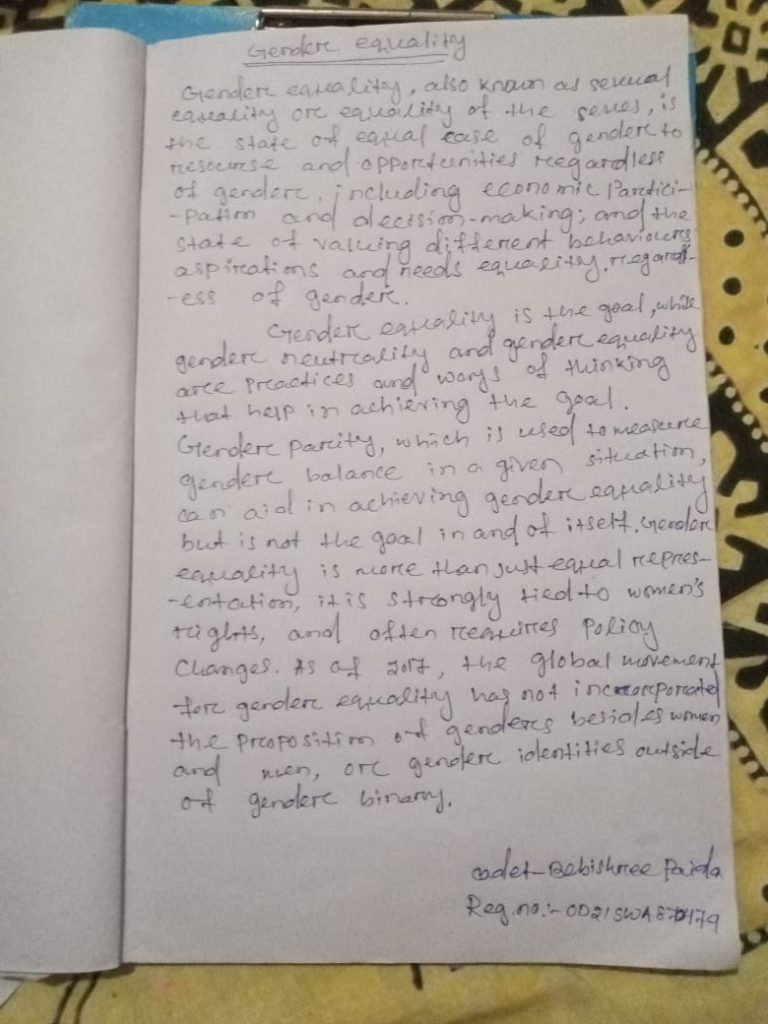 Gender equality
Gender equality, also known as sexual
equality or equality of the sexes, is
the state of equal ease of gender to
resourse and opportunities regardless
of gender, including economic Partici-
-pation and decision-making; and the
state of valuing different behaviours
aspirations and needs equality, regardl-
-ess of gender.
Gender equality is the goal, while
gender neutrality and gender equality
are Practices and ways of thinking
that help in achieving the goal.
Gender parity, which is used to measure
gender balance in a given situation,
can aid in achieving gender equality
but is not the goal in and of itself. Gender
equality is more than just equal repres-
-entation, it is strongly tied to women's
rights, and often requires Policy
Changes. As of 2017, the global movement
for gender equality has not incorporated
the proposition of genders besides women
and men, or gender identities outside
of gender binary.
cadet- Bebishree Parida
Reg.no.:- OD21SWA